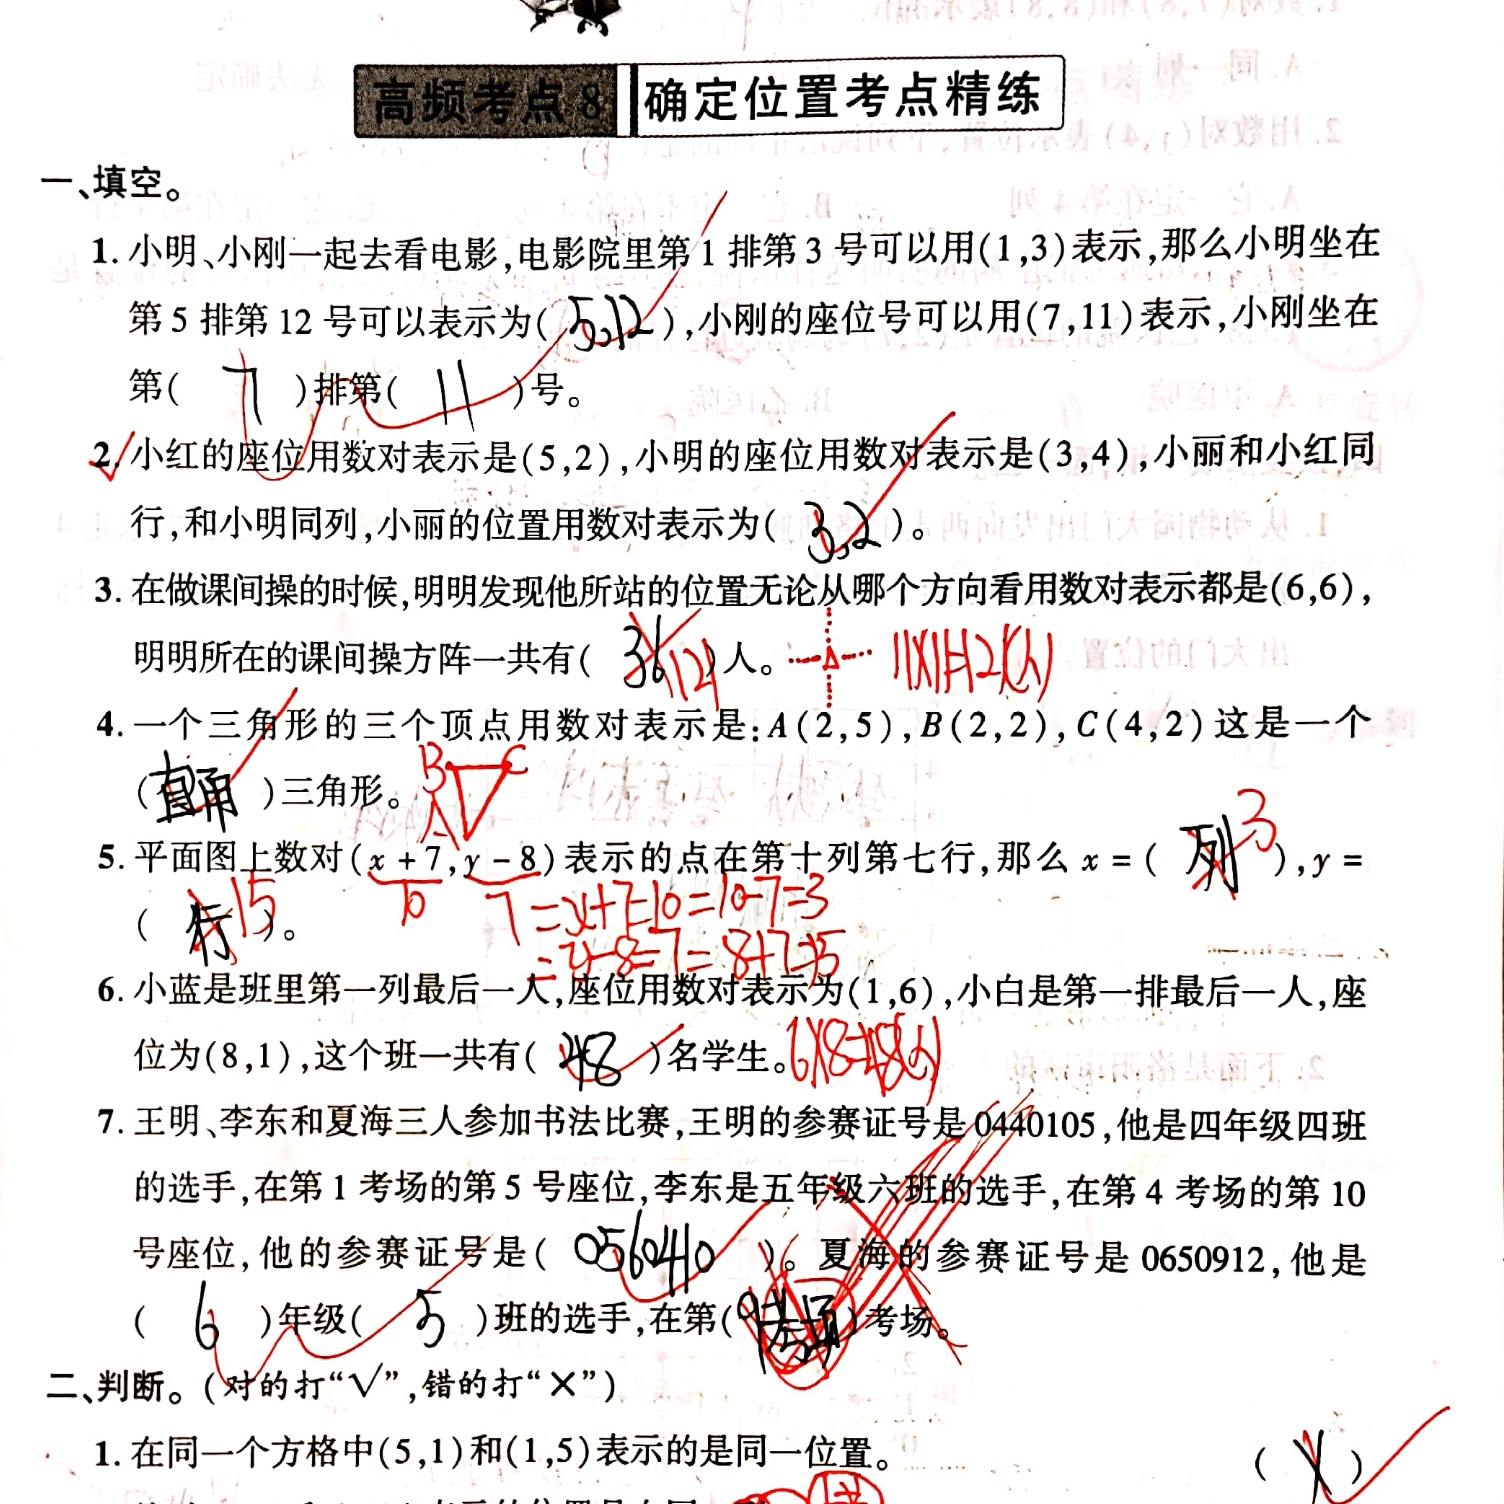 高频考点8 确定位置考点精练
一、填空。
1. 小明、小刚一起去看电影,电影院里第1排第3号可以用(1,3)表示,那么小明坐在
第5排第12号可以表示为( 5,12 ),小刚的座位号可以用(7,11)表示,小刚坐在
第( 7 )排第( 11 )号。
2. 小红的座位用数对表示是(5,2),小明的座位用数对表示是(3,4),小丽和小红同
行,和小明同列,小丽的位置用数对表示为( 3,2 )。
3. 在做课间操的时候,明明发现他所站的位置无论从哪个方向看用数对表示都是(6,6),
明明所在的课间操方阵一共有( 36 121 )人。 11×11=121(人)
4. 一个三角形的三个顶点用数对表示是:A(2,5),B(2,2),C(4,2)这是一个
( 直角 )三角形。 B C
A
5. 平面图上数对(x+7,y-8)表示的点在第十列第七行,那么x=( 列 3 ),y=
( 行 15 )。 10 7 =x+7=10=10-7=3
=y-8=7=8+7=15
6. 小蓝是班里第一列最后一人,座位用数对表示为(1,6),小白是第一排最后一人,座
位为(8,1),这个班一共有( 48 )名学生。 6×8=48(人)
7. 王明、李东和夏海三人参加书法比赛,王明的参赛证号是0440105,他是四年级四班
的选手,在第1考场的第5号座位,李东是五年级六班的选手,在第4考场的第10
号座位,他的参赛证号是( 0560410 )。夏海的参赛证号是0650912,他是
( 6 )年级( 5 )班的选手,在第( 9考场 )考场。
二、判断。(对的打“√”,错的打“×”)
1. 在同一个方格中(5,1)和(1,5)表示的是同一位置。 ( × )